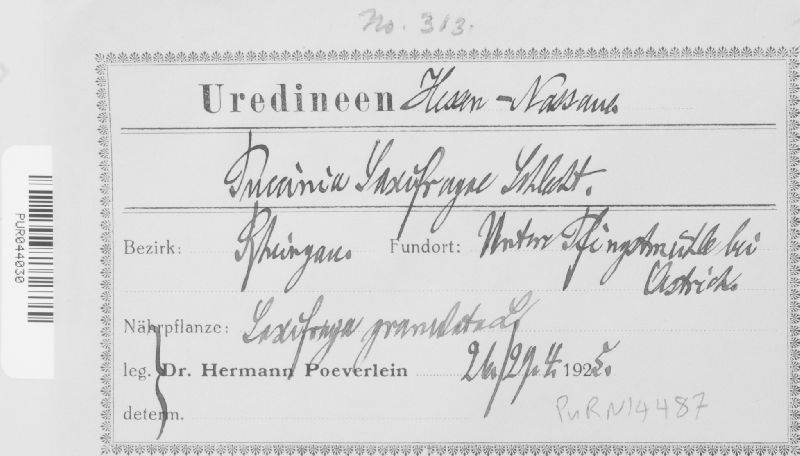 No. 313.
Uredineen Hessen-Nassau.
Puccinia Saxifragae Schlecht.
Bezirk: Rheingau. Fundort: Unter Pfingstmühle bei
Östrich.
Nährpflanze: Saxifraga granulata L.
leg. Dr. Hermann Poeverlein 26./29. 4. 1925.
determ.
PURN14487
PUR044030